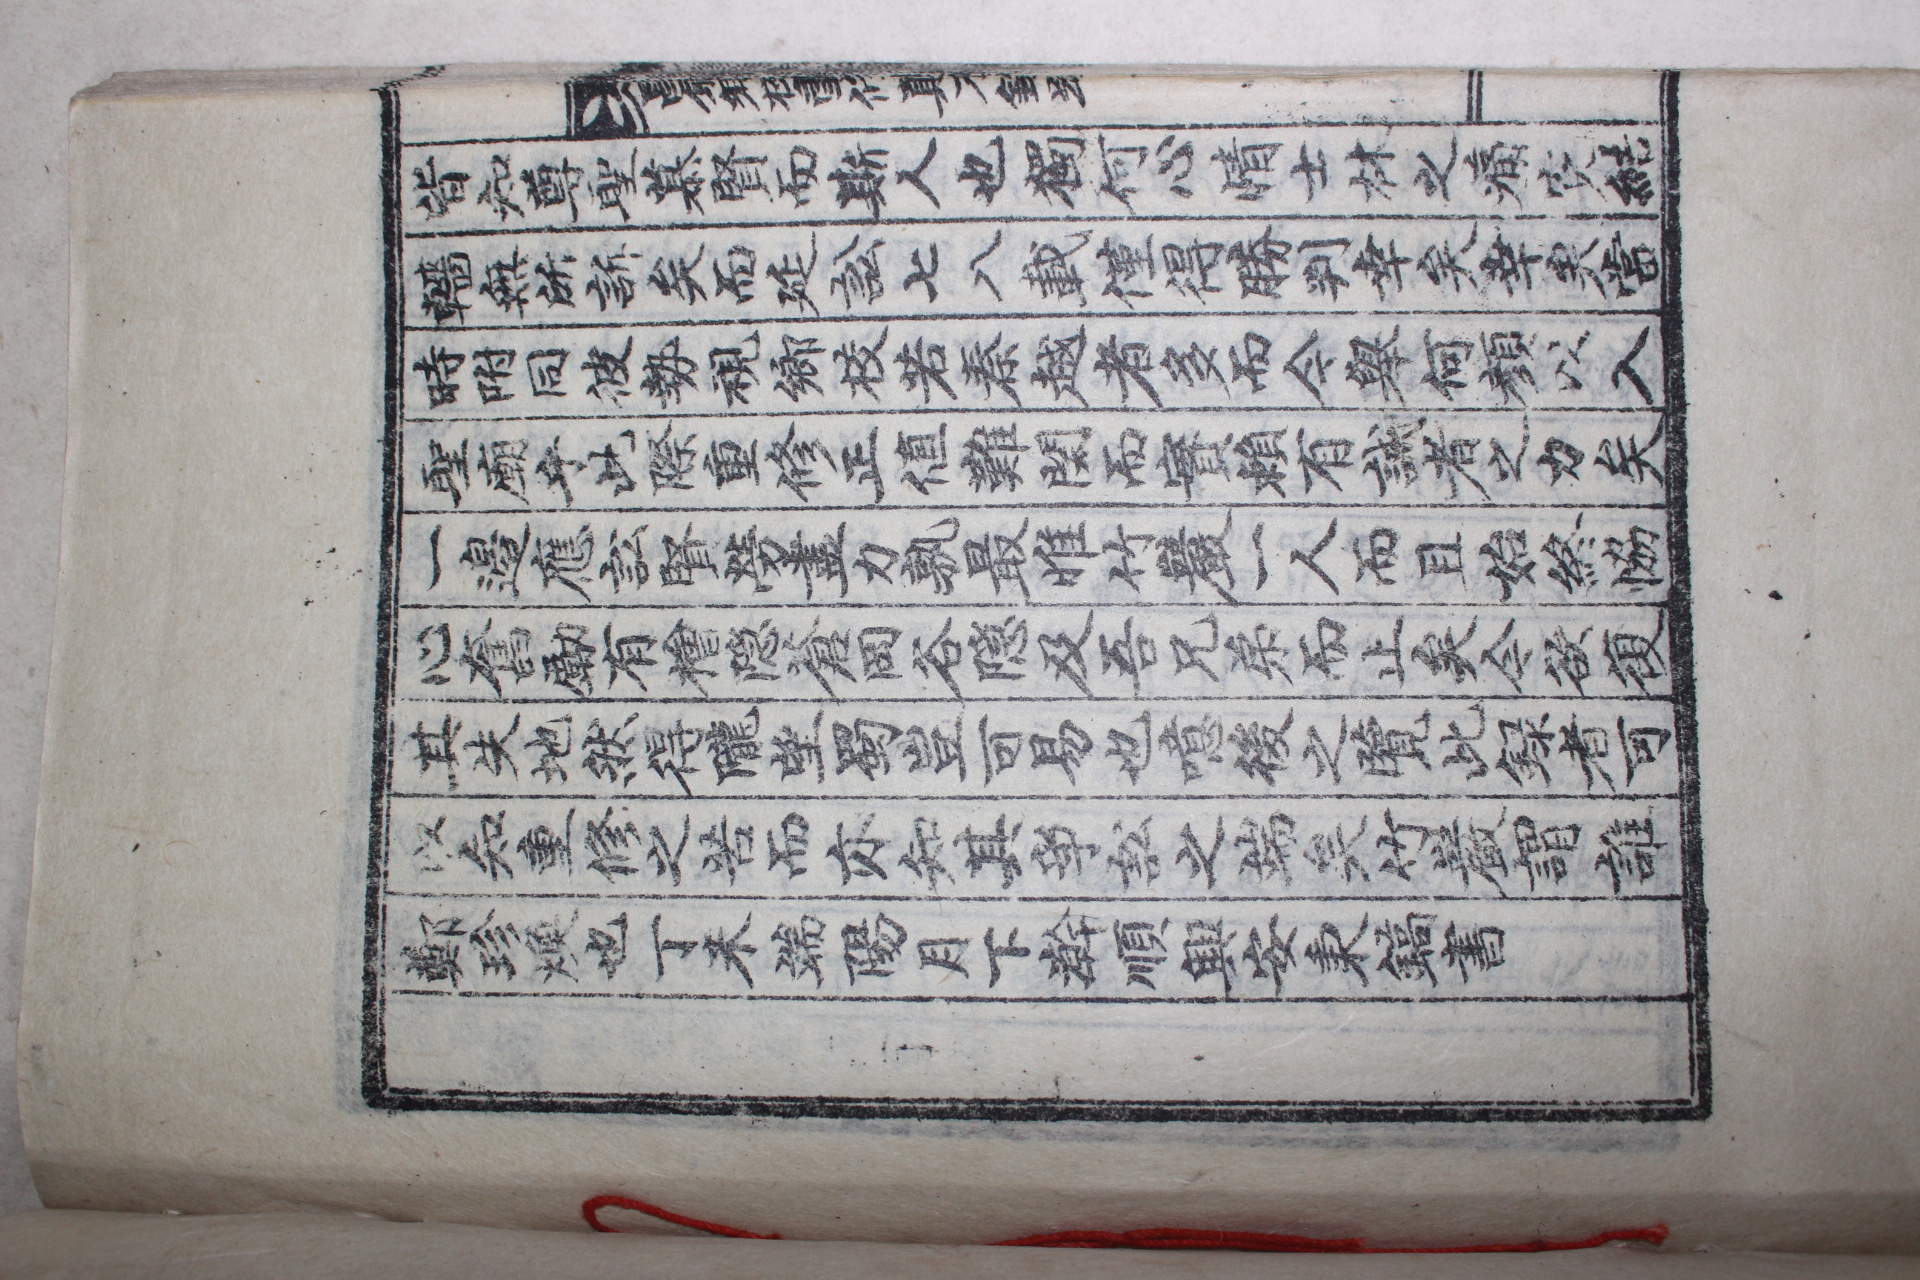 昌原鄕校重修眞本錄跋
皆知尊聖慕賢而斯人也獨何心情士林之痛哭結
轖無所訴矣而延訟七八載僅得勝判幸矣幸矣當
時附同彼勢視鄉校若秦越者多而今舉何顏以入
聖廟乎此際重修正値難関而實賴有誠者之力矣
一邊應訟賢勞盡力孰最惟竹巖一人而且始終恊
心奮勵有檜隠蒼岡谷隠及吾兄弟而止矣今欲復
其失地然得隴望蜀豈可易也噫後之覽此録者可
以知重修之苦而亦知其爭訟之端矣竹巖謂誰
鄭珍煥也丁未端陽月下澣順興安秉鎬書